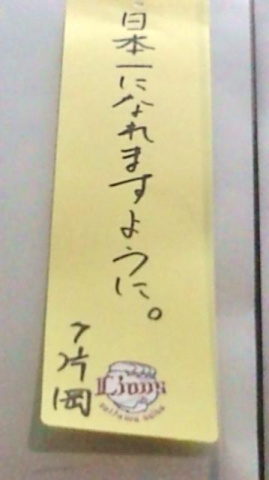 日本一になれますように。
7片岡
Lions